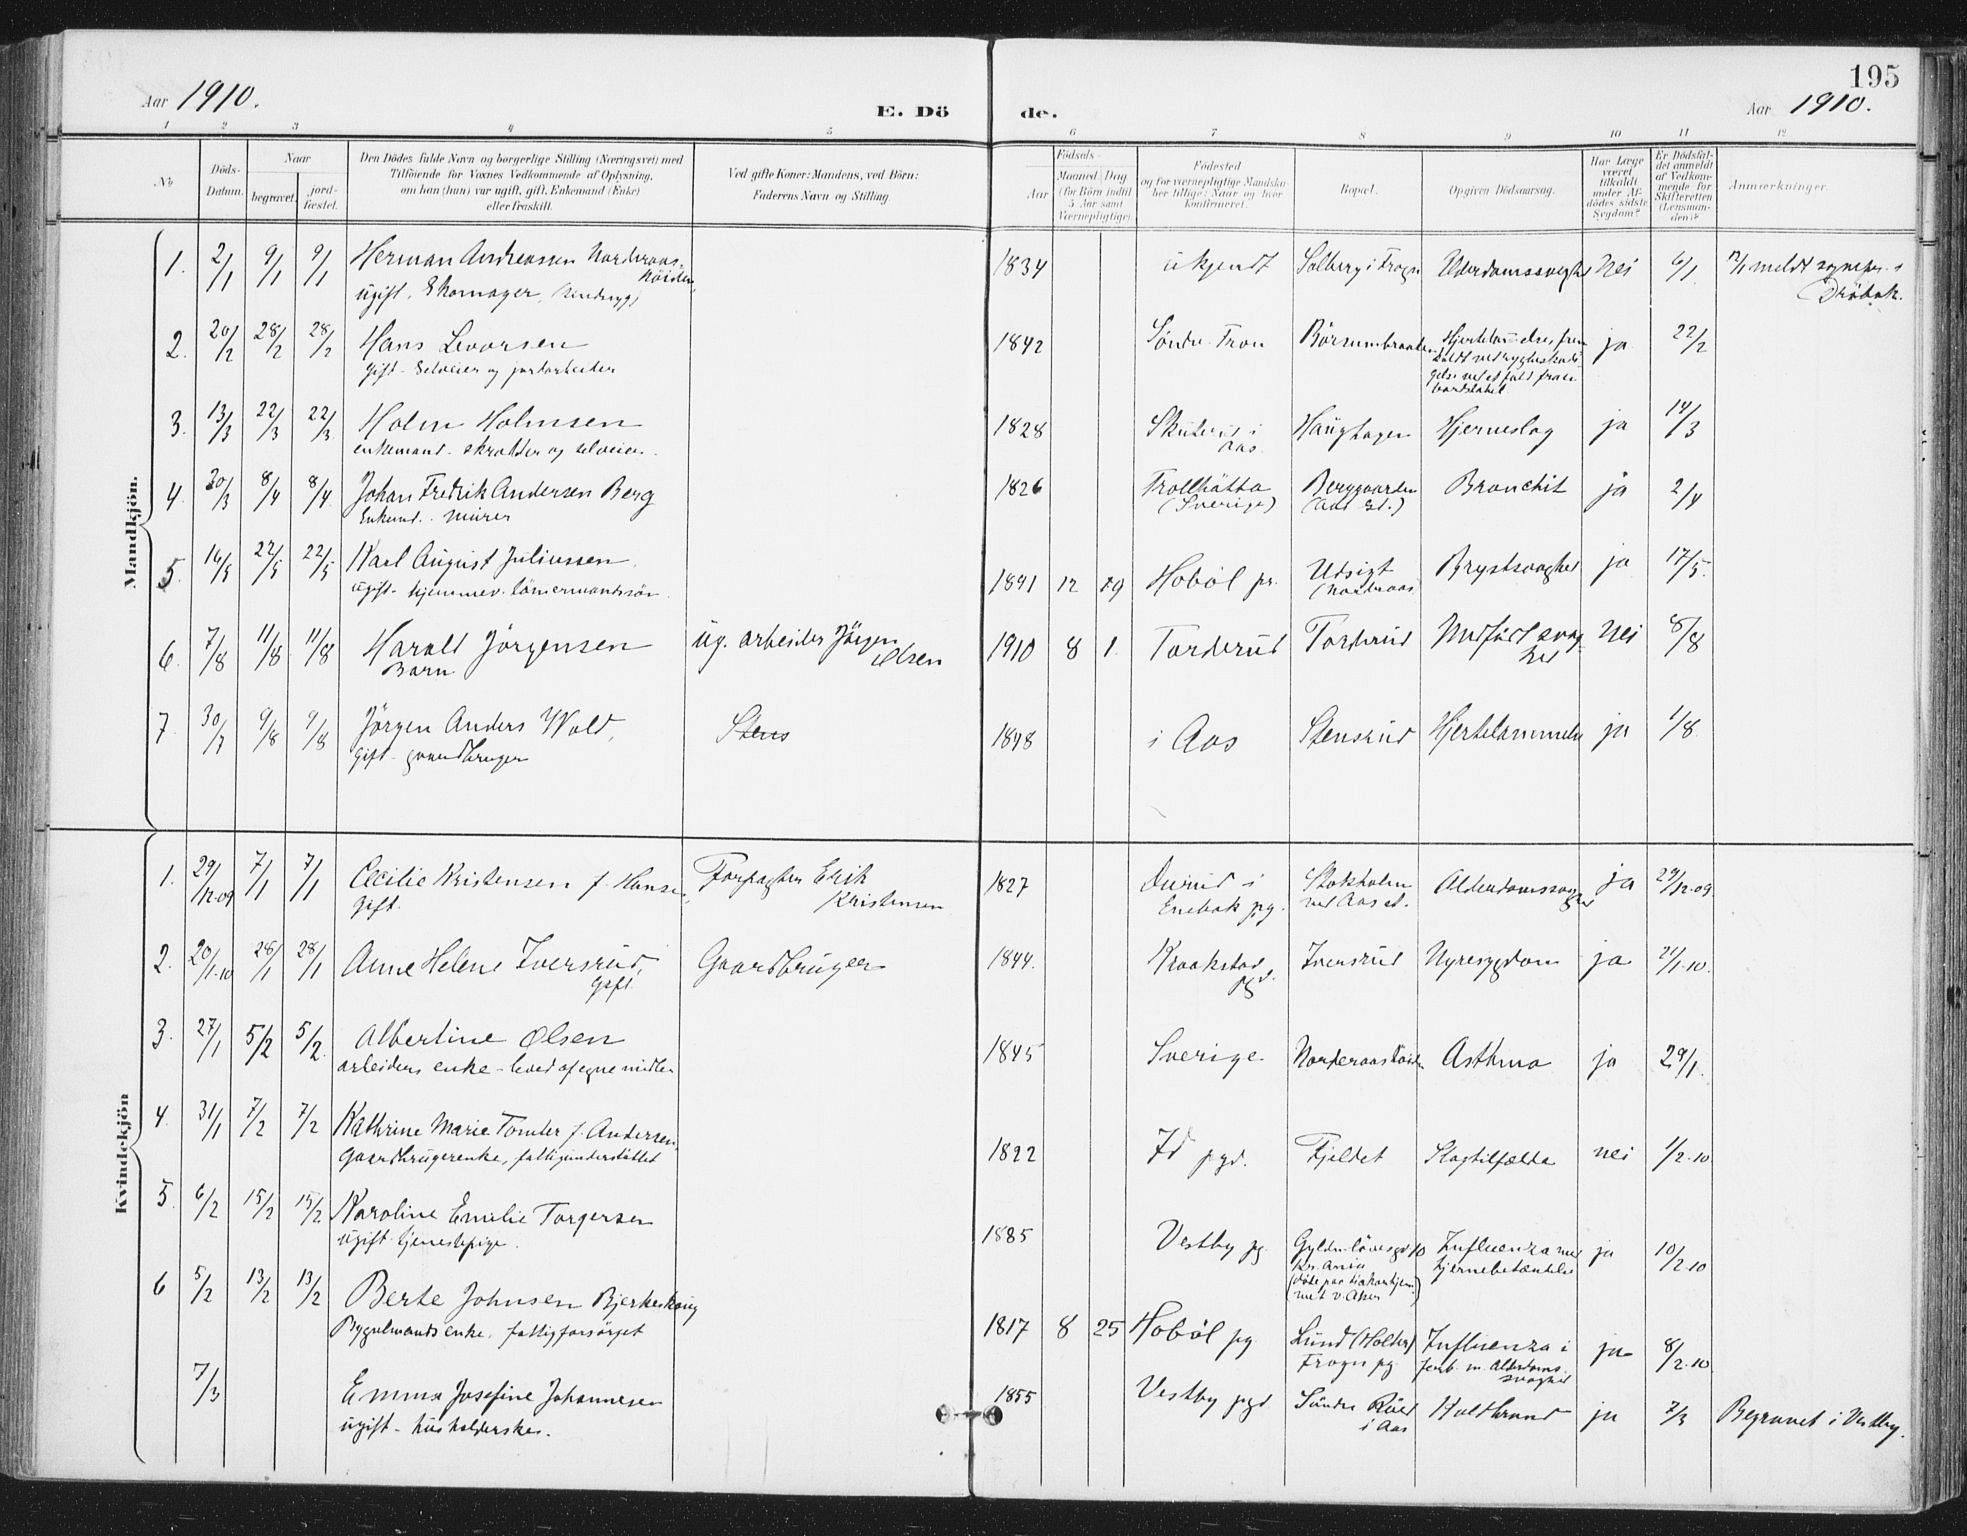 195
Aar 1910.
E. Dö de.
Aar 1910.
1 2 3 4 5 6 7 8 9 10 11 12
No
Döds-Datum.
Naar
begravet.
jordfæstet.
Den Dödes fulde Navn og borgerlige Stilling (Næringsvei) med
Tilföiende for Voxnes Vedkommende af Oplysning,
om han (hun) var ugift, gift, Enkemand (Enke)
eller fraskilt.
Ved gifte Koner: Mandens, ved Börn:
Faderens Navn og Stilling.
Födsels-
Aar
Maaned Dag
(for Börn indtil
5 Aar samt
Værnepligtige).
Födested
og for værnepligtige Mandska-
ber tillige: Naar og hvor
Konfirmeret.
Bopæl.
Opgiven Dödsaarsag.
Har Læge
været
tilkaldt
under Af-
dödes sidste
Sygdom?
Er Dödsfal-
det anmeldt
af Vedkom-
mende for
Skifteretten
(Lensman-
den)?
Anmærkninger.
Mandkjön.
1. 2/1 9/1 9/1 Herman Andreassen Norderaas- 1834 ukjendt Solberg i Frogn Alderdomssvaghed Nei 6/1 meldt sognepr. i
ugift. Skomager. Dröbak.
2. 20/2 28/2 28/2 Hans Levorsen 1842 Söndre Tron Hjertelammelse, frem ja 22/2
Gift - Selveier og jordarbeider
3. 13/3 22/3 22/3 Holm Holmsen 1828 Skuterud i Haughagen Hjerneslag ja 14/3
Aas.
enkemand - skrædder og selveier.
4. 30/3 8/4 8/4 Johan Fredrik Andersen Berg 1826 Trollhätta Berggaarden Bronchit ja 2/4
Enkemd. - murer (Sverige) (Aas St.)
5. 16/5 22/5 22/5 Karl August Juliussen 1891 12 19 Hoböl pr. Udsigt Brystsvaghed ja 17/5.
ugift - hjemmev. tömmermandssön. (Nordraas)
6. 7/8 11/8 11/8 Harald Jörgensen ug. arbeider Jörgen 1910 8 1. Torderud Torderud Medfödt svag- Nei 8/8
Barn. Olsen hed
7. 30/7 9/8 9/8 Jörgen Anders Wold, Stens 1848 i Aas Stensrud Hjertelammelse ja 1/8.
Gift - gaardbruger
Kvindekjön
1. 29/12-09 7/1 7/1 Cecilie Kristensen f. Hansen, Forpagter Erik 1827 Durud i Stokholm Alderdomssvaghed ja 29/12-09
Gift. Kristensen Enebak pg. ved Aas st.
2. 20/1-10 28/1 28/1 Anne Helene Iversrud, Gaardbruger 1844. Kraakstad Iversrud Nyresygdom ja 21/1-10.
Gift. pgd.
3. 27/1 5/2 5/2 Albertine Olsen 1845 Sverige Norderaaskoien Asthma ja 29/1.
arbeiders enke - leved af egne midler
4. 31/1 7/2 7/2 Kathrine Marie Tomter f. Andersen, 1822 Id pgd. Fjeldet Slagtilfælde nei 1/2-10
Gaardbrugerenke, fattigunderstöttet
5. 6/2 15/2 15/2 Karoline Emilie Torgersen 1885 Vestby pg. Gyldenlövesgd 10 Influenza med ja 10/2-10
ugift - tjenestepige. Kr.ania hjernebetændelse
6 5/2 13/2 13/2 Berte Johnsen Bjerkeskoug 1817 8 25 Hoböl pg. Lund (Holter) Influenza i ja 8/2-10
Bygselmands enke, fattigforsörget Frogn pg. forb. m. Alderdoms-
svaghed
7/3 Emma Josefine Johannesen 1855 Vestby pgd Söndre Rüed Koldbrand ja 7/3 Begravet i Vestby.
ugift - husholderske. i Aas